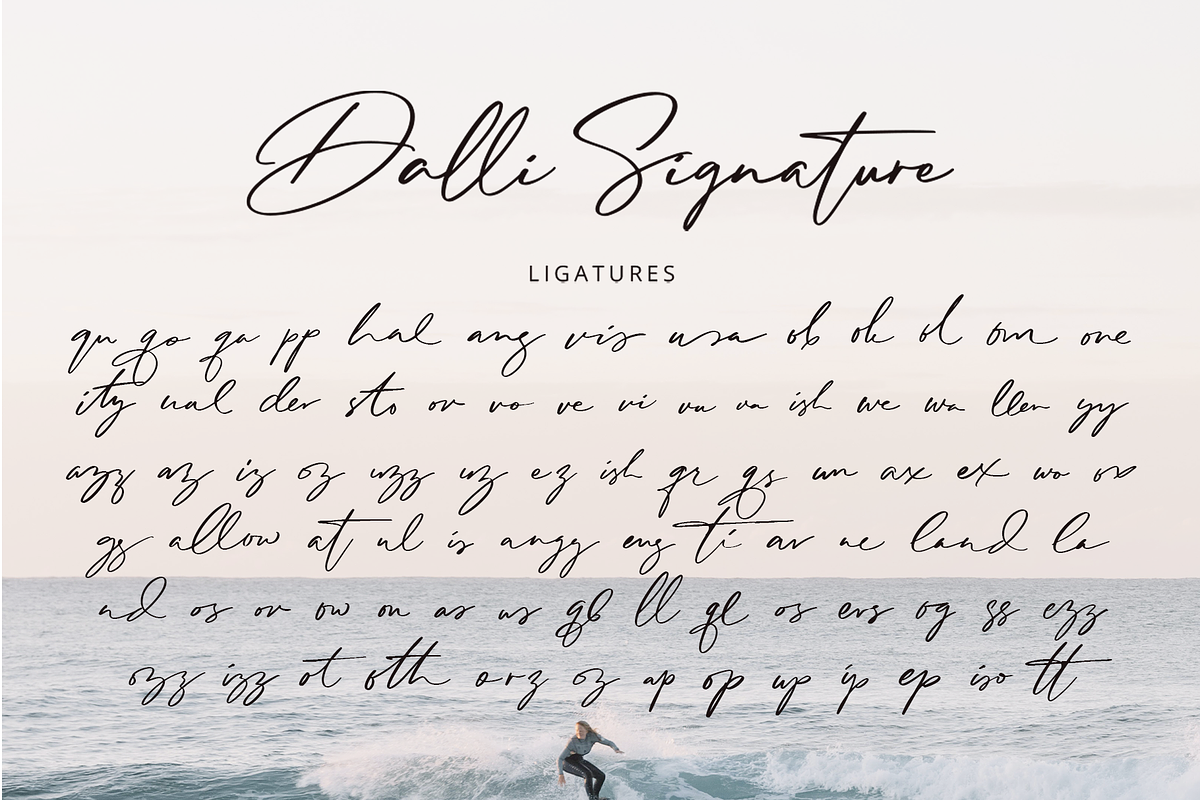 Dalli Signature
LIGATURES
qu go qa pp hal ang vis usa ob ok ol om one
ity ual der sto or vo ve vi vu va ish we wa llen yy
azz az iz oz uzz uz ez ish gr gs un ax ex wo ox
gs allow at ul is angy eng ti ar ue land la
nd os or ow on as us gb ll gl os ers og ss ezz
ozz izz ot oth orz oz ap op up ip ep iso tt